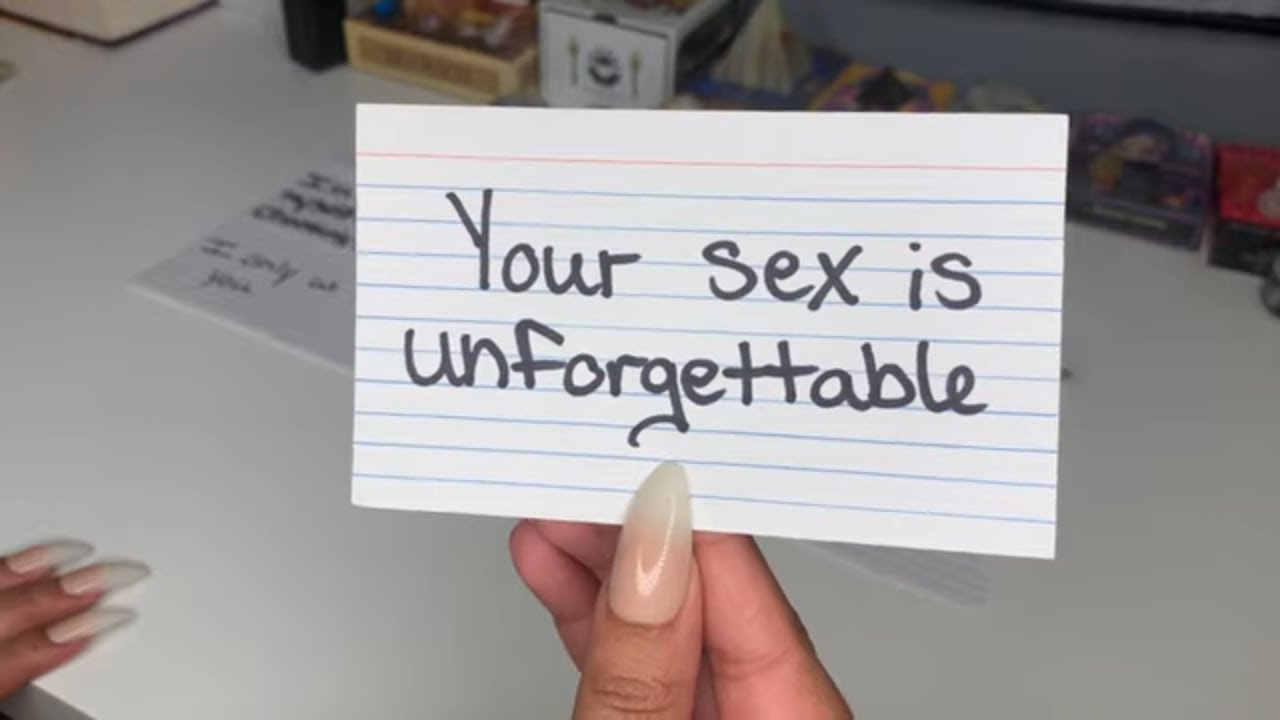 Your sex is
unforgettable
I only
you